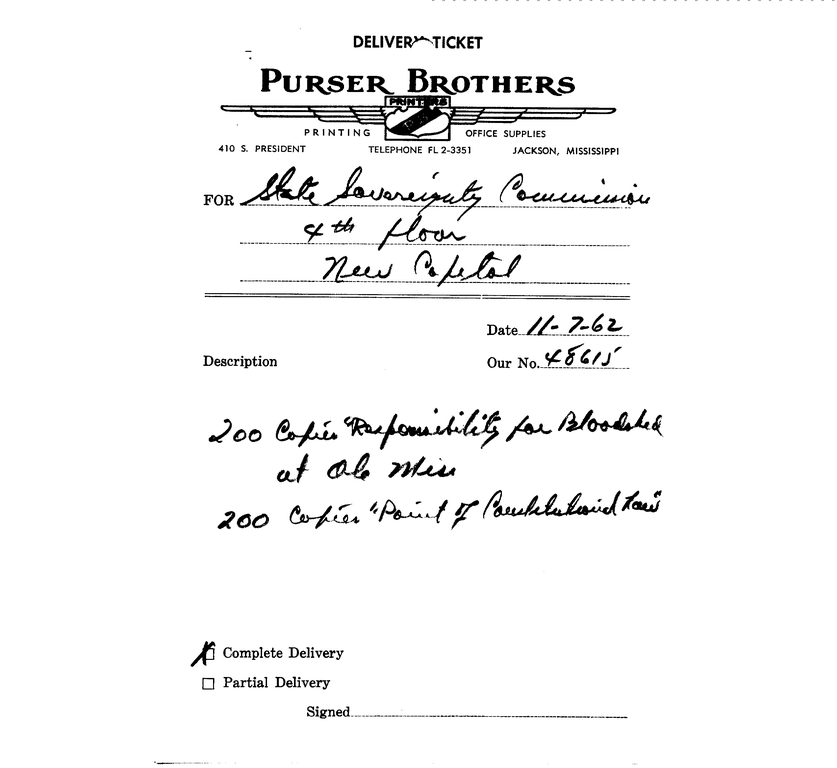 DELIVERY TICKET
PURSER BROTHERS
PRINTERS
PRINTING OFFICE SUPPLIES
410 S. PRESIDENT TELEPHONE FL 2-3351 JACKSON, MISSISSIPPI
FOR State Sovereignty Commission
4th floor
New Capitol
Date 11-7-62
Description Our No. 48615
200 Copies "Responsibility for Bloodshed
at Ole Miss
200 Copies "Point of Constitutional Law"
Complete Delivery
Partial Delivery
Signed